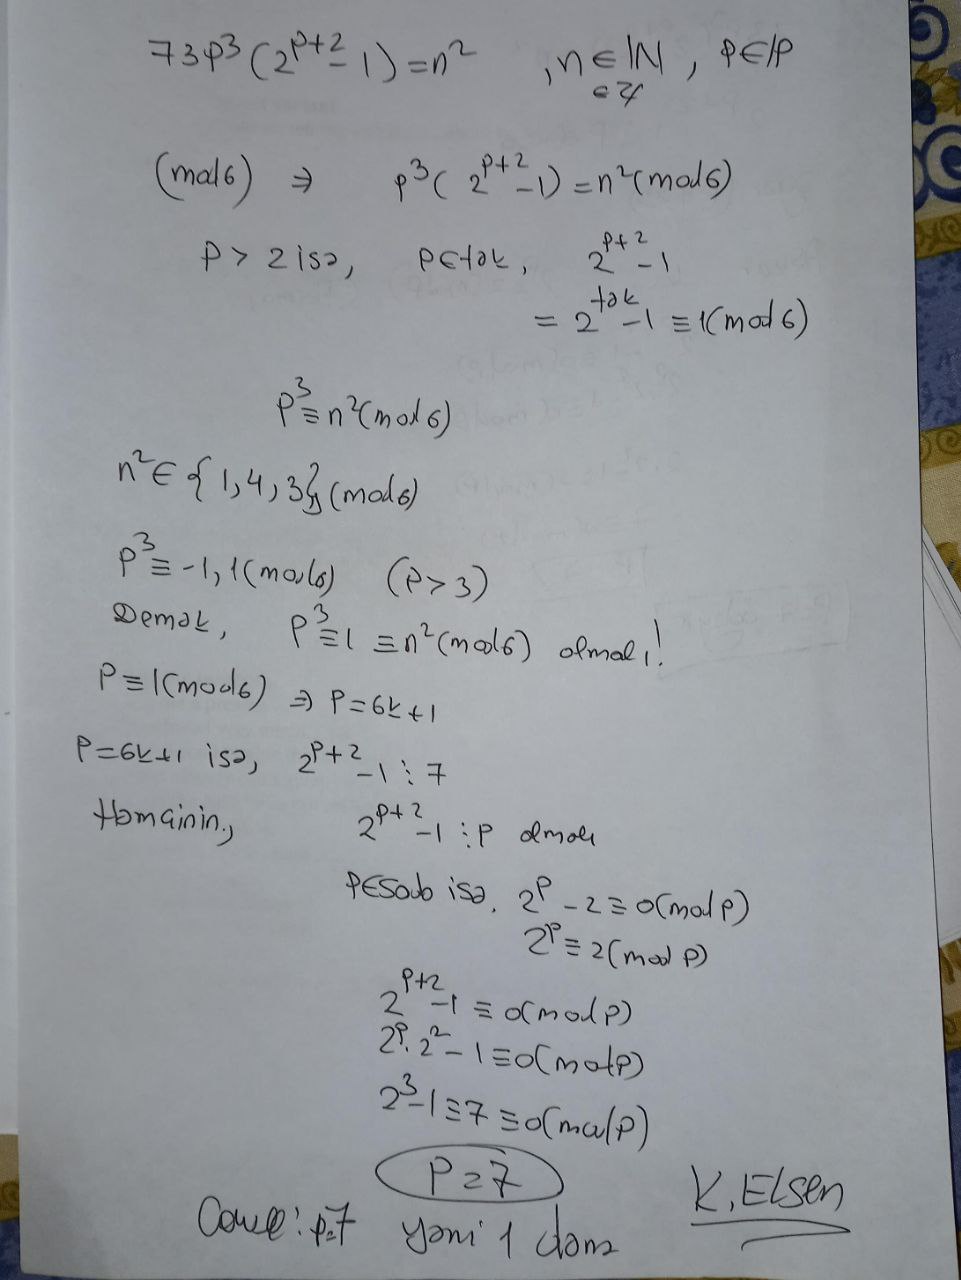 73p³(2ᵖ⁺²-1)=n² , n∈ℕ, p∈ℙ
∈ℤ
(mod6) ⇒ p³(2ᵖ⁺²-1)=n²(mod6)
p>2 isə, p∈tək, 2ᵖ⁺²-1
=2ᵗᵊᵏ-1≡1(mod6)
p³≡n²(mod6)
n²∈{1,4,3}(mod6)
p³≡-1,1(mod6) (p>3)
Demək, p³≡1≡n²(mod6) olmalı!
p≡1(mod6) ⇒ p=6k+1
p=6k+1 isə, 2ᵖ⁺²-1⋮7
Həmçinin, 2ᵖ⁺²-1⋮p olmalı
p∈Sadə isə, 2ᵖ-2≡0(mod p)
2ᵖ≡2(mod p)
2ᵖ⁺²-1≡0(mod p)
2ᵖ·2²-1≡0(mod p)
2³-1≡7≡0(mod p)
p=7
Cavab: p=7 yəni 1 dənə
K.Elsen